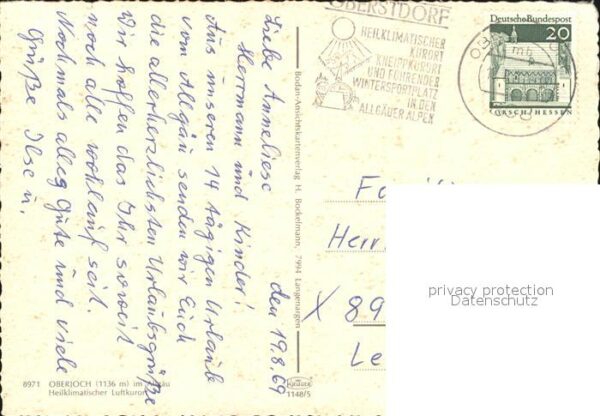 OBERSTDORF
HEILKLIMATISCHER
KURORT
KNEIPPKURORT
UND FÜHRENDER
WINTERSPORTPLATZ
IN DEN
ALLGÄUER ALPEN
Deutsche Bundespost
20
LORSCH/HESSEN
den 19.8.69
Liebe Anneliese
Herrmann und Kinder!
Aus unseren 14 tägigen Urlaub
vom Allgäu senden wir Euch
die allerherzlichsten Urlaubsgrüße
Wir hoffen das Ihr soweit
noch alle wohlauf seit.
Nochmals alles Gute und viele
Grüße Ilse u.
Bodan-Ansichtskartenverlag H. Bockelmann, 7994 Langenargen
Herr
X 89
Le
privacy protection
Datenschutz
8971 OBERJOCH (1136 m) im Allgäu
Heilklimatischer Luftkurort
1148/5